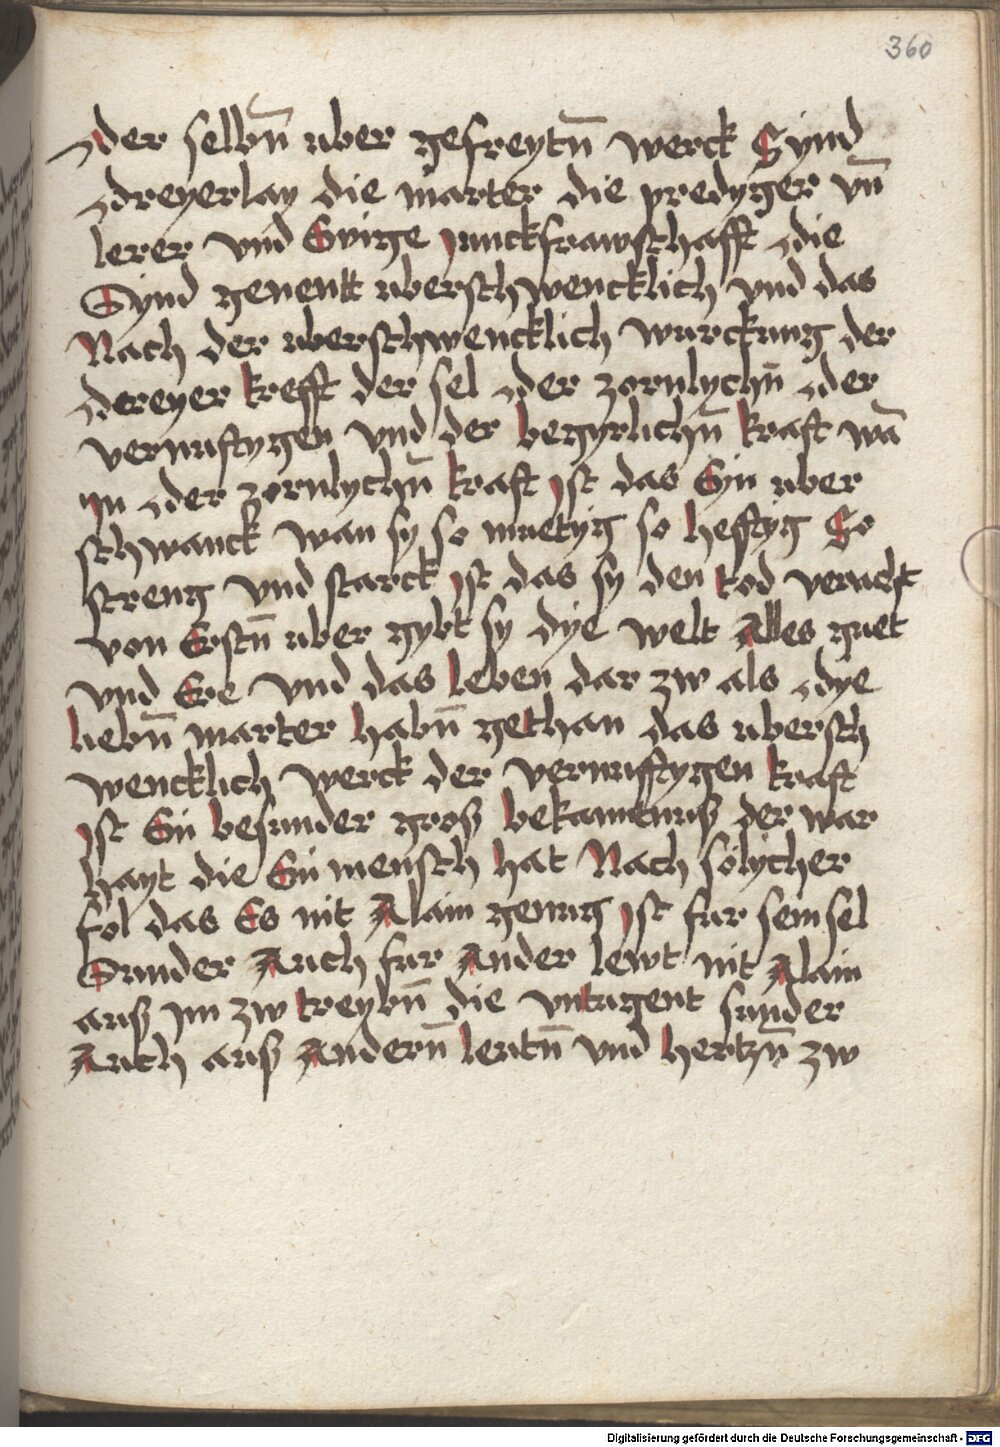 360
der selbn̄ uber gefreytn̄ werck Synd
dreyerlay die marter die predyger vn̄
lerer vnd Evige junckfrawschafft die
Synd genentt uberschwencklich vnd das
Nach der uberschwencklich wurckung der
dereyer krefft der sel der zornlychn̄ der
vernuftygen vnd der begyrlichn̄ kraft wā
jn der zornlychn̄ kraft jst das Ein uber
schwanck wan sy so muetyg so heftyg So
streng vnd starck jst das sy den tod veracht
von Erstn̄ uber gybt sy dye welt Alles guet
vnd Ere vnd das leben dar zw als dye
liebn̄ marter habn̄ gethan das ubersch
wencklich werck der vernufftygen kraft
jst Ein besunder gros bekantnus der war
hayt die Ein mensch hat Nach sölycher
fol das Es nit Alain genug jst fur sein sel
Sunder Auch fur Ander lewt nit Alain
aus jm zw treybn̄ die vntugent sunder
Auch aus Andern̄ leutn̄ vnd hertzn̄ zw
Digitalisierung gefördert durch die Deutsche Forschungsgemeinschaft - DFG